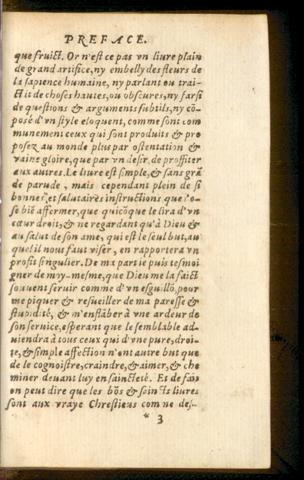 PREFACE.
que fruict. Or n'est ce pas vn liure plein
de grand artifice, ny embelly des fleurs de
la sapience humaine, ny parlant ou trai-
ctāt de choses hautes, ou obscures, ny farsi
de questions & arguments subtils, ny cō-
posé d'vn style eloquent, comme sont com
munement ceux qui sont produits & pro
posez au monde plus par ostentation &
vaine gloire, que par vn desir, de proffiter
aux autres. Le liure est simple, & sans grā
de parade, mais cependant plein de si
bonnes, et salutaires instructions que i'o-
se biē affermer, que quicōque le lira d'vn
cœur droit, & ne regardant qu'à Dieu &
au salut de son ame, qui est le seul but, au
quel il nous faut viser, en rapportera vn
profit singulier. De ma part ie puis tesmoi
gner de moy-mesme, que Dieu me la faict
souuent seruir comme d'vn esguillō, pour
me piquer & resueiller de ma paresse &
stupidité, & m'enflāber à vne ardeur de
son seruice, esperant que le semblable ad-
uiendra à tous ceux qui d'vne pure, droi-
te, & simple affection n'ont autre but que
de le cognoistre, craindre, & aimer, & che
miner deuant luy en saincteté. Et de faict
on peut dire que les bōs & saincts liures
sont aux vrays Chrestiens comme des-
* 3